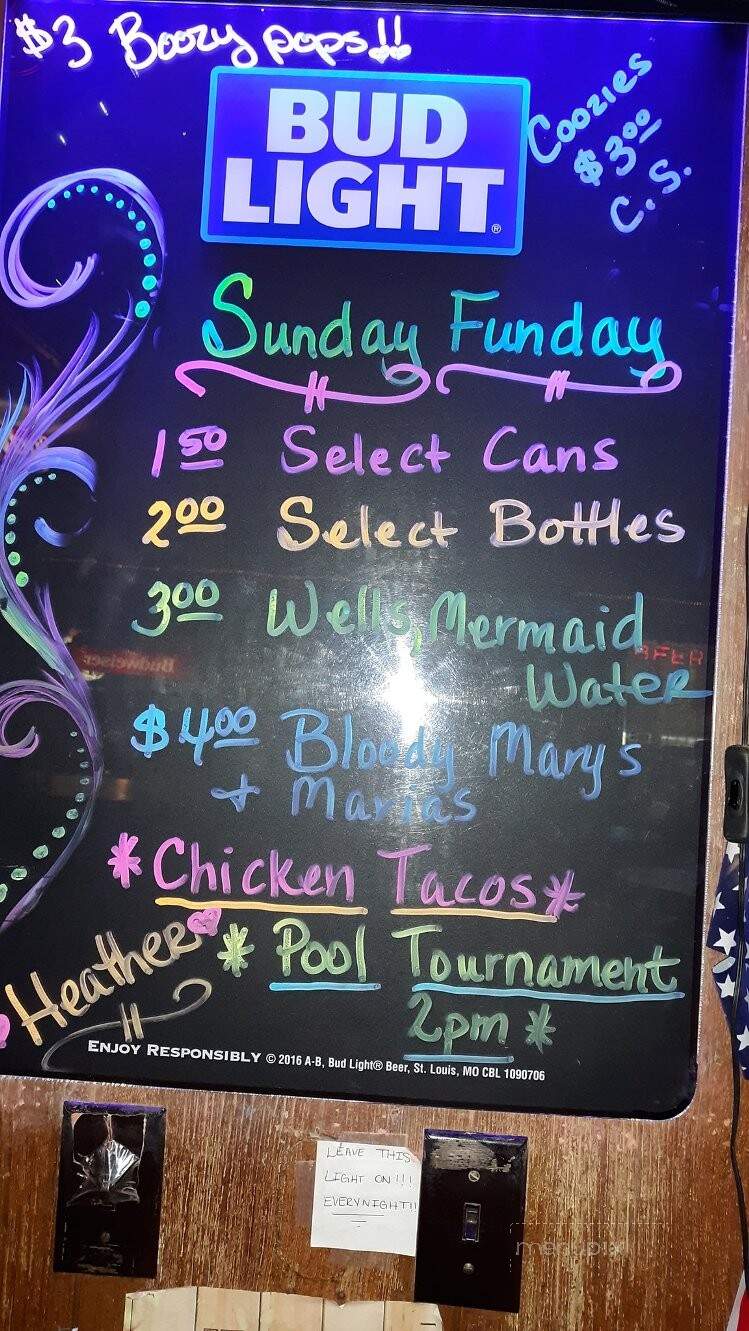 $3 Boozy pops!!
Coozies
$3.00
C.S.
BUD
LIGHT®
Sunday Funday
1 50 Select Cans
2 00 Select Bottles
3 00 Wells, Mermaid
Water
$4 00 Bloody Mary's
+ Marias
*Chicken Tacos*
Heather
* Pool Tournament
2pm *
ENJOY RESPONSIBLY © 2016 A-B, Bud Light® Beer, St. Louis, MO CBL 1090706
LEAVE THIS
LIGHT ON!!!
EVERYNIGHT!!
menupix